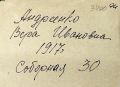 Андреенко
Вера Ивановна
1917
Соборная 30